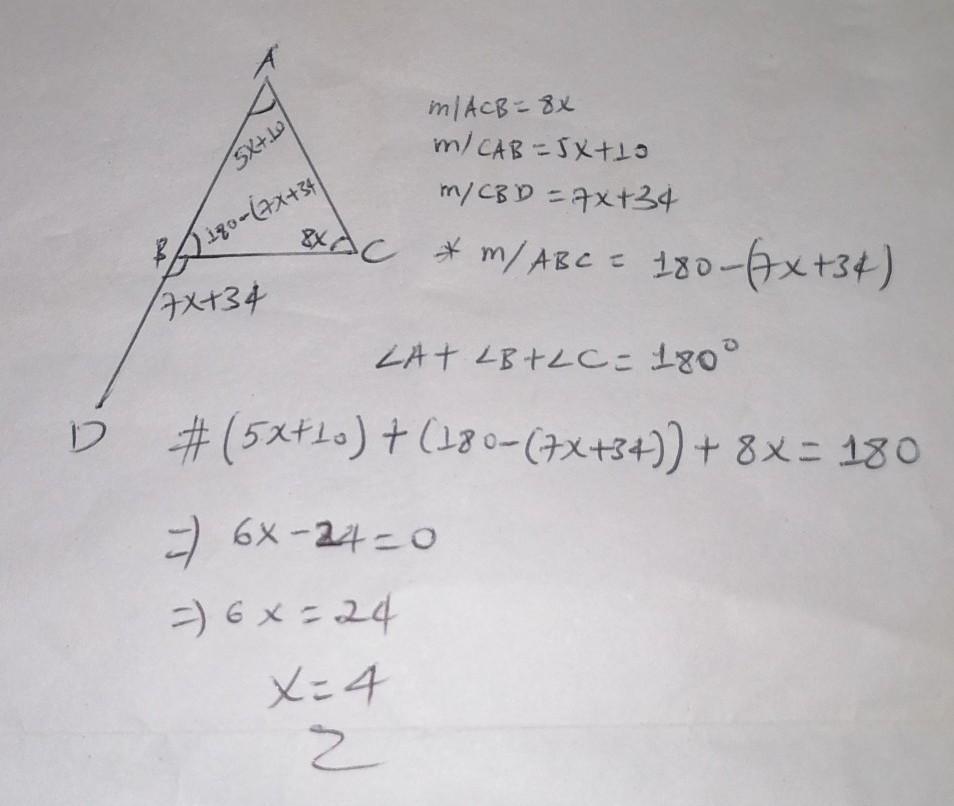 A
5x+10
180-(7x+34
B
8x
C
7x+34
D
m/ACB = 8x
m/CAB = 5x+10
m/CBD = 7x+34
* m/ABC = 180-(7x+34)
∠A+ ∠B+∠C= 180°
# (5x+10) + (180-(7x+34)) + 8x = 180
=) 6x-24=0
=) 6x = 24
x=4